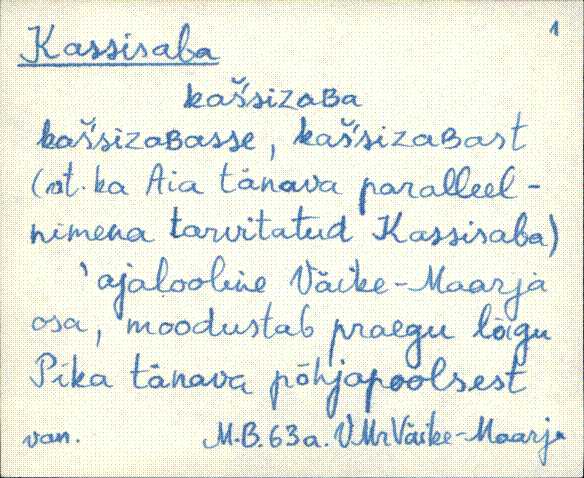 1
Kassisaba
kašsizaʙa
kašsizaʙasse, kašsizaʙast
(vt. ka Aia tänava paralleel-
nimena tarvitatud Kassisaba)
'ajalooline Väike-Maarja
osa, moodustab praegu lõigu
Pika tänava põhjapoolsest
van. M.B. 63 a. VMr Väike-Maarja